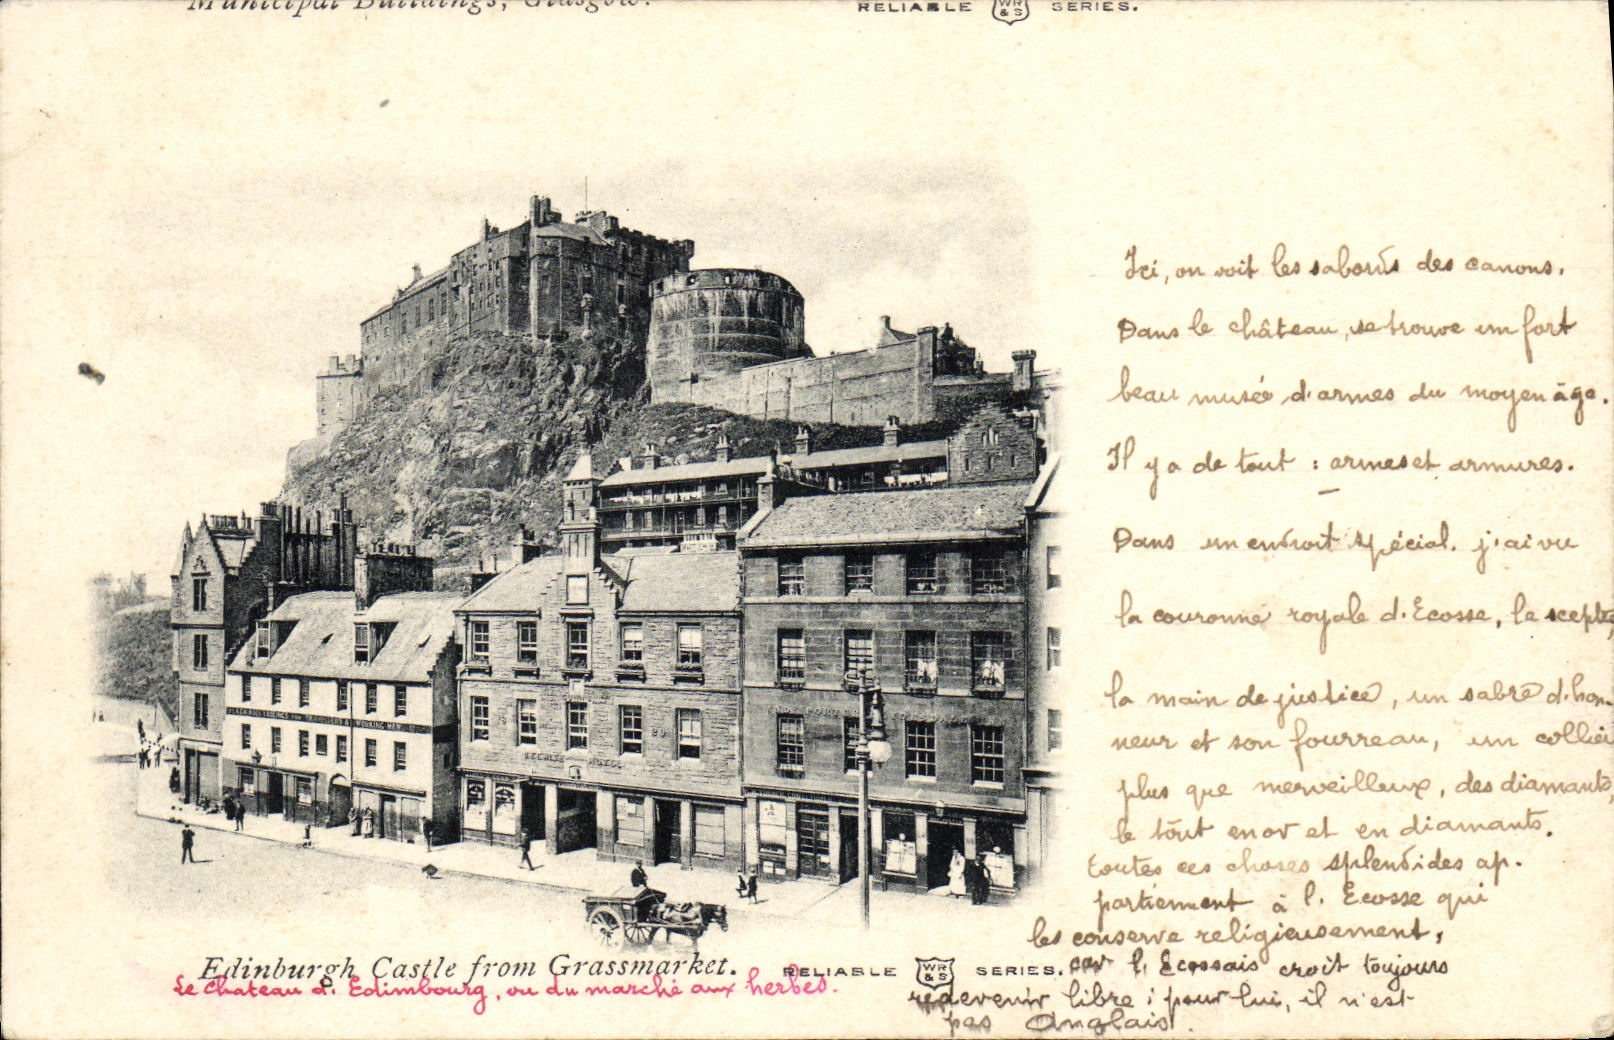 Municipal Buildings, Glasgow.
RELIABLE WR & S SERIES.
Ici, on voit les sabords des canons.
Dans le château, se trouve un fort
beau musée d'armes du moyen âge.
Il y a de tout : armes et armures.
Dans un endroit spécial. j'ai vu
la couronne royale d'Ecosse, le sceptre,
la main de justice, un sabre d'hon-
neur et son fourreau, un collier
plus que merveilleux, des diamants,
le tout en or et en diamants.
toutes ces choses splendides ap-
partiennent à l'Ecosse qui
les conserve religieusement,
car l'Ecossais croit toujours
redevenir libre ; pour lui, il n'est
pas Anglais.
Edinburgh Castle from Grassmarket.
RELIABLE WR & S SERIES.
Le Chateau d'Edimbourg, vu du marché aux herbes.